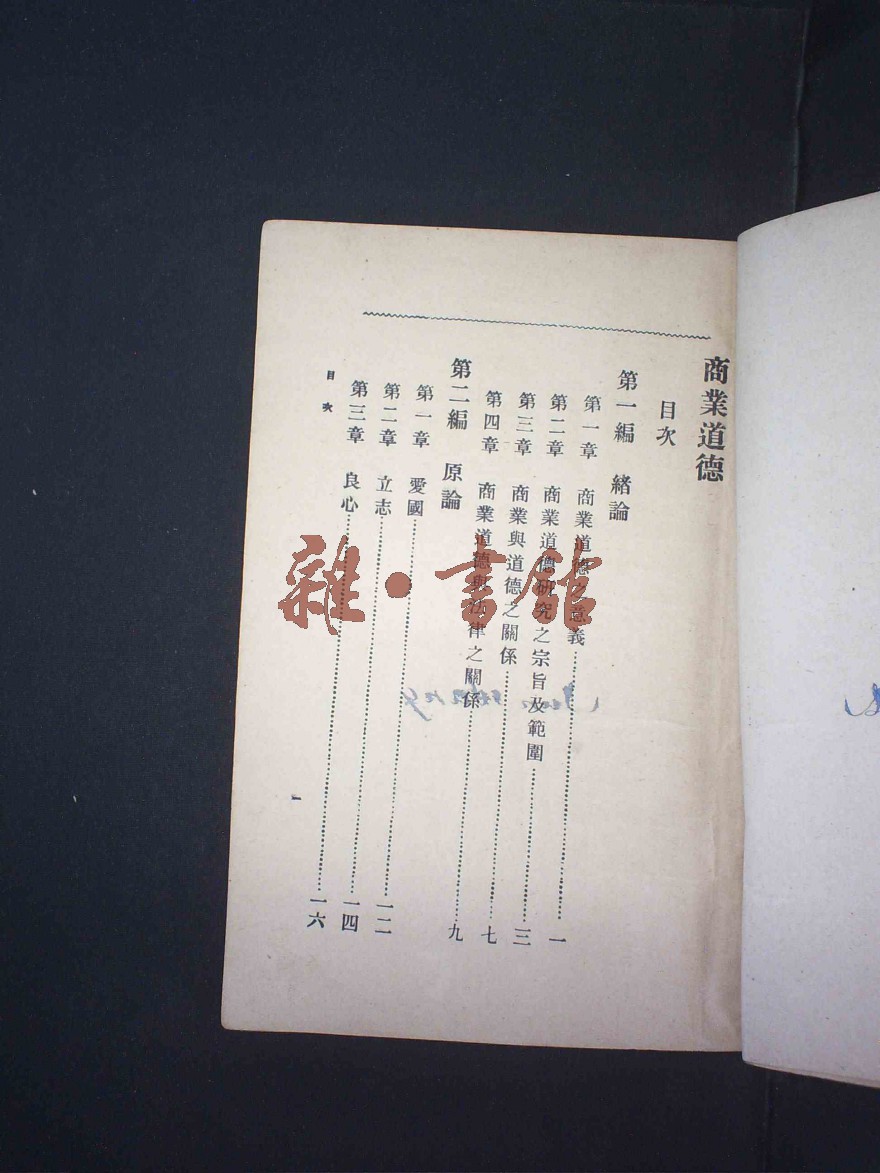 商業道德
目次
第一編 緒論
第一章 商業道德之意義……一
第二章 商業道德研究之宗旨及範圍……三
第三章 商業與道德之關係……七
第四章 商業道德與法律之關係……九
第二編 原論
第一章 愛國……一二
第二章 立志……一四
第三章 良心……一六
目次
一
雜·書館